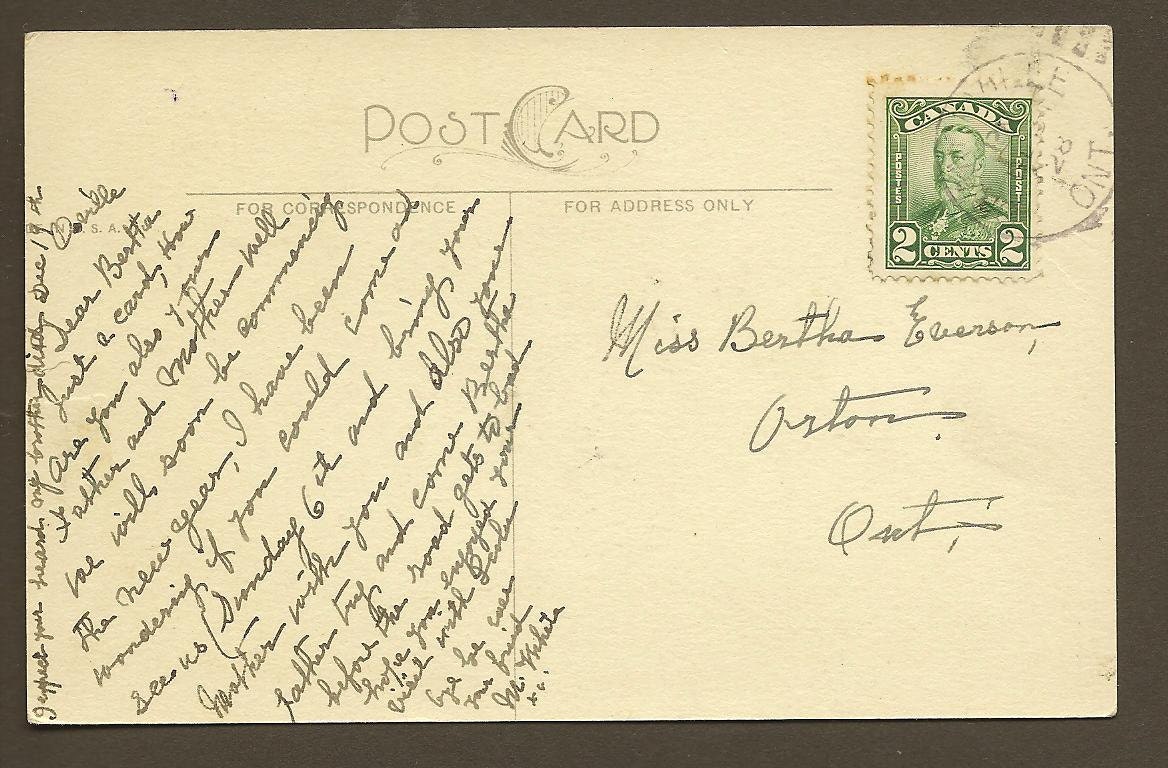 POST CARD
FOR CORRESPONDENCE
FOR ADDRESS ONLY
S. A.
CANADA
POSTES
POST
2 CENTS 2
28
ONT
Miss Bertha Everson,
Orton
Ont,
Dear Bertha
Just a card, How
Are you also your
Father and Mother well
we will soon be commencing
the New Year, I have been
wondering if you could come and
see us Sunday 6th and bring your
Mother with you and also your
father try and come Bertha
before the road gets to bad
hope you enjoyed your
visit with
bye
your
M. White
I expect you heard my brother died Dec 19th